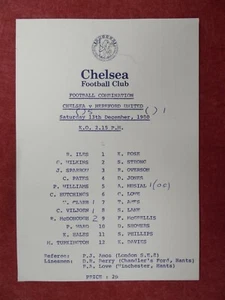 Chelsea
Football Club
FOOTBALL COMBINATION
CHELSEA v HEREFORD UNITED
( ) 5 ( ) 1
Saturday 13th December, 1980
K.O. 2.15 P.M.
R. ILES 1 K. ROSE
G. WILKINS 2 S. STRONG
J. SPARROW 3 R. OVERSON
C. PATES 4 D. JONES
P. WILLIAMS 5 A. MUSIAL
C. HUTCHINGS 6 C. LOWE
W. CLARK 7
C. VILJOEN 8 E. LANE
R. McDONOUGH 9 F. McGRELLIS
P. WARD 10 D. SHOWERS
R. HALES 11 S. PHILLIPS
H. TURKINGTON 12 K. DAVIES
Referee: P.J. (London S.R.F)
Linesmen: D.R. Perry (Chandler's Ford, Hants)
R.B. Love (Winchester, Hants)
PRICE : 2p